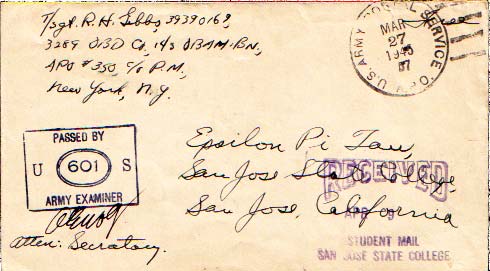 T/Sgt. R. H. Gibbs, 39390169,
3289 ORD Co. 143 OBAM-BN,
APO #350, c/o P.M.,
New York, N.Y.
U.S. ARMY POSTAL SERVICE
A.P.O.
MAR
27
1945
Free
PASSED BY
U 601 S
ARMY EXAMINER
Atten: Secratary.
Epsilon Pi Tau,
San Jose State College,
San Jose, California
RECEIVED
APR 9
STUDENT MAIL
SAN JOSE STATE COLLEGE